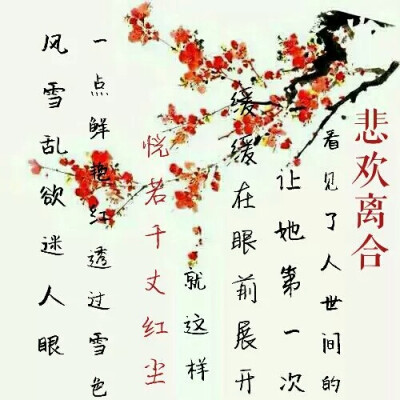 风雪乱欲迷人眼
一点鲜艳红透过雪色
悦若千丈红尘
就这样
缓缓在眼前展开
让她第一次
看见了人世间的
悲欢离合